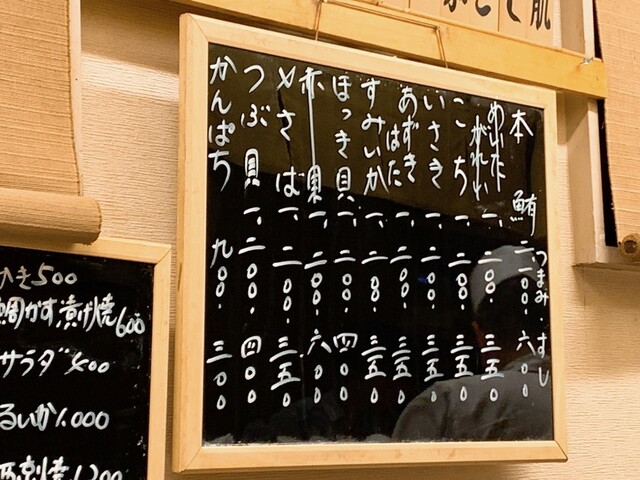 つまみ・すし
本鮪 二一〇〇・ 六〇〇
めいたがれい 一、二〇〇・ 三五〇
こち 一、二〇〇・ 三五〇
いさき 一、二〇〇・ 三五〇
あずきはた 一、二〇〇・ 三五〇
すみいか 一、二〇〇・ 三五〇
ほっき貝 一、二〇〇・ 四〇〇
赤貝 一、二〇〇・ 六〇〇
〆さば 一、二〇〇・ 三五〇
つぶ貝 一、二〇〇・ 四〇〇
かんぱち 九〇〇・ 三〇〇
き500
鯛かす漬け焼600
サラダ400
るいか1.000
西京焼1200